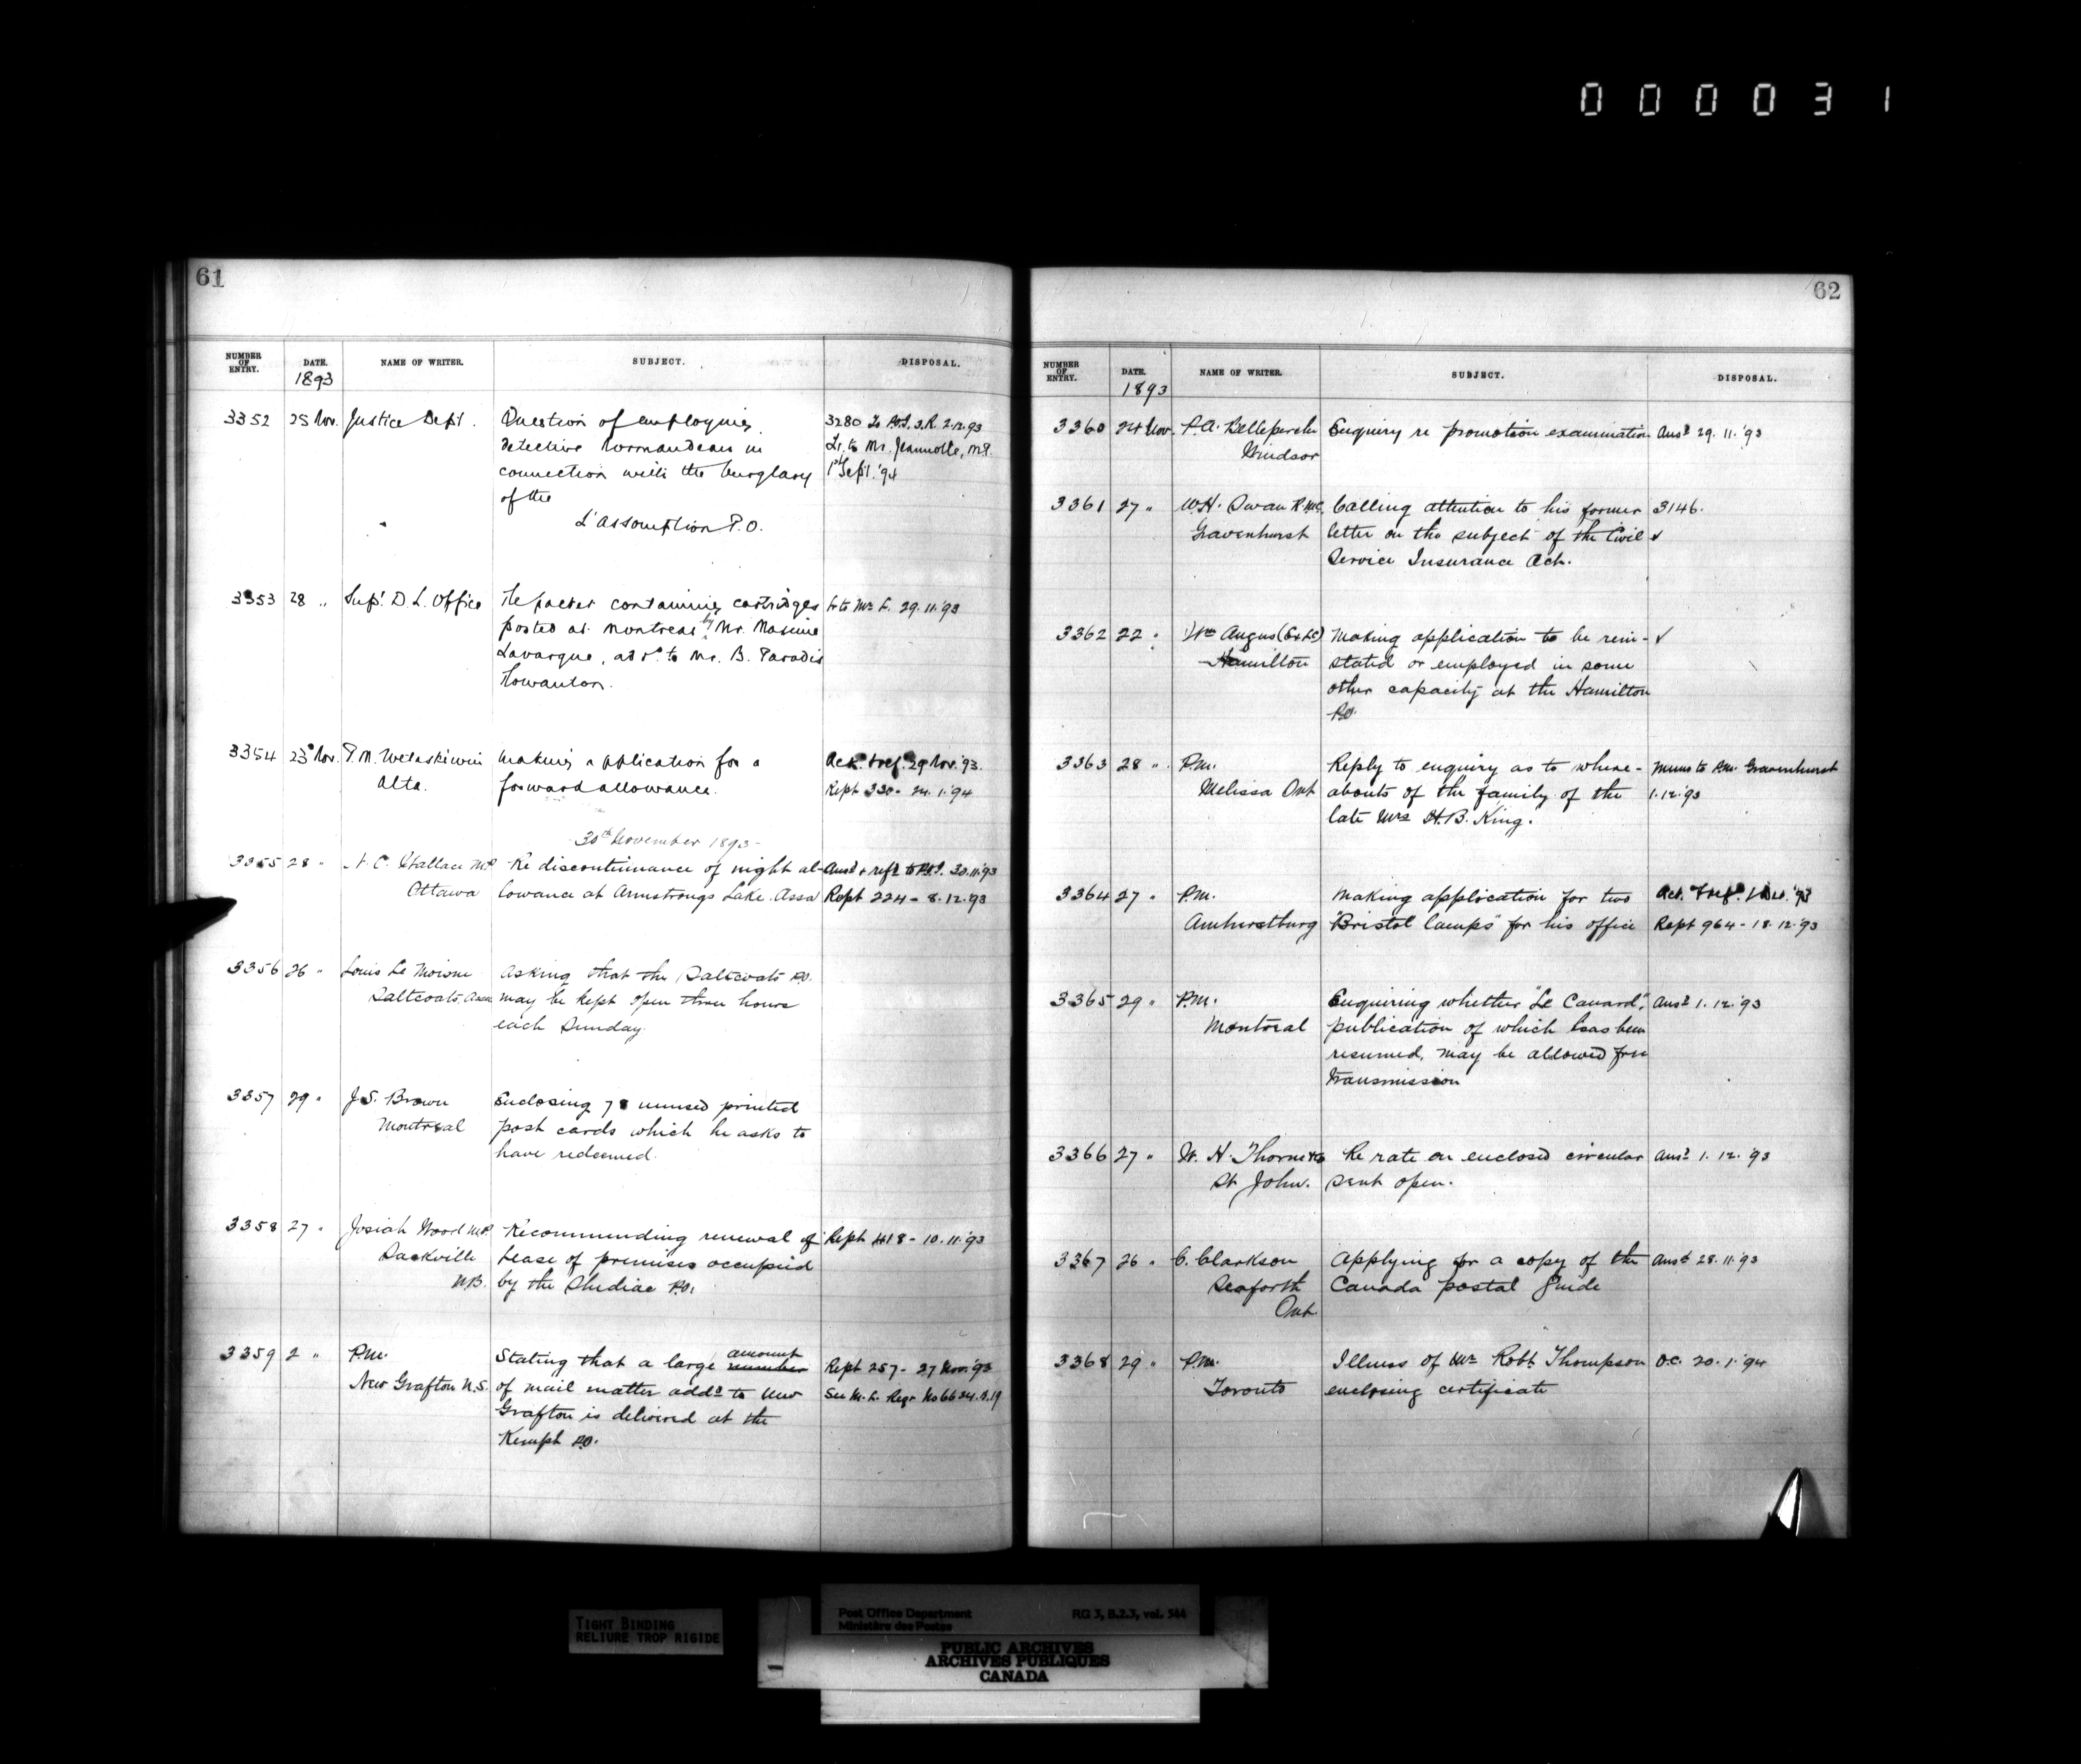 000031
61
NUMBER OF ENTRY. DATE. NAME OF WRITER. SUBJECT. DISPOSAL.
1893
3352 25 Nov. Justice Dept. Question of employing 3280 To P.O.I. 2.12.93
detective Normandeau in Lr. to Mr. Jeannotte, M.P.
connection with the burglary 1st Sept. '94
of the
L'Assomption P.O.
3353 28 " Supt. D. L. Office Re packet containing cartridges Lr to Mr L. 29.11.'93
posted at Montreal by Mr. Maxime
Lavargue, add. to Mr. B. Paradis
3354 23 Nov. P.M. Wetaskiwin Making application for a Ack. & ref. 29 Nov. '93.
Alta. forward allowance. Rept 330 - 24.1.'94
30th November 1893 -
3355 28 " N. C. Wallace M.P. Re discontinuance of night al- Ansd & refd to P.O.I. 30.11.'93
Ottawa lowance at Armstrongs Lake. Assa Rept 224 - 8.12.'93
3356 26 " Louis Le Moine Asking that the Saltcoats P.O.
Saltcoats, Assa may be kept open three hours
each Sunday.
3357 29 " J. S. Brown Enclosing 78 unused printed
Montreal post cards which he asks to
have redeemed.
3358 27 " Josiah Wood M.P. Recommending renewal of Rept 418 - 10.11.'93
Sackville Lease of premises occupied
N.B. by the Shediac P.O.
3359 2 " P.M. Stating that a large number amount Rept 257 - 27 Nov. '93
New Grafton N.S. of mail matter addd to New See M. L. Regr No 6634. P. 19
Grafton is delivered at the
Kempt P.O.
62
NUMBER OF ENTRY. DATE. NAME OF WRITER. SUBJECT. DISPOSAL.
1893
3360 24 Nov. P. A. Belleperche Enquiry re promotion examination Ansd 29.11.'93
Windsor
3361 27 " W. H. Swan R.M.C. Calling attention to his former 3146.
Gravenhurst letter on the subject of the Civil ✓
Service Insurance Act.
3362 22 " Wm Angus (Ex L.C.) Making application to be rein- ✓
Hamilton stated or employed in some
other capacity at the Hamilton
P.O.
3363 28 " P.M. Reply to enquiry as to where- Memo to P.M. Gravenhurst
Melissa Ont abouts of the family of the 1.12.'93
late Mrs H. B. King.
3364 27 " P.M. Making application for two Ack. & ref. 1 Dec. '93
Amherstburg "Bristol lamps" for his office Rept 964 - 18.12.'93
3365 29 " P.M. Enquiring whether "Le Canard", Ansd 1.12.'93
Montreal publication of which has been
resumed, may be allowed free
transmission
3366 27 " W. H. Thorne & Co Re rate on enclosed circular Ansd 1.12.'93
St John. sent open.
3367 26 " C. Clarkson Applying for a copy of the Ansd 28.11.'93
Seaforth Canada postal guide
Ont.
3368 29 " P.M. Illness of Mr Robt Thompson O.C. 20.1.'94
Toronto enclosing certificate
TIGHT BINDING
RELIURE TROP RIGIDE
Post Office Department RG 3, B.2.3, vol. 544
Ministère des Postes
PUBLIC ARCHIVES
ARCHIVES PUBLIQUES
CANADA